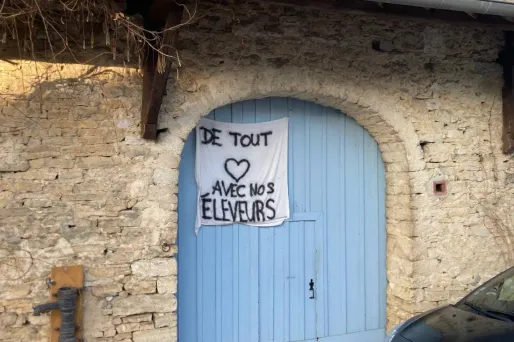 DE TOUT
♡
AVEC NOS
ÉLEVEURS